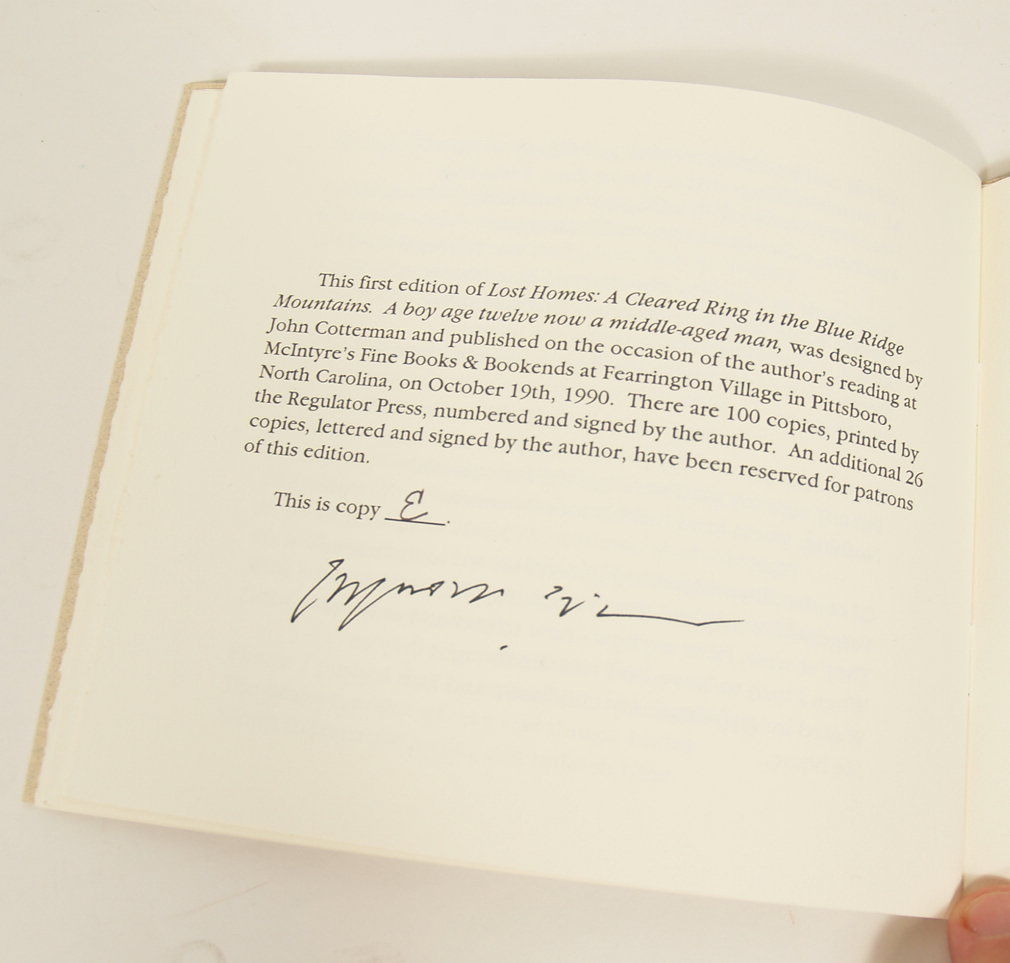 This first edition of Lost Homes: A Cleared Ring in the Blue Ridge
Mountains. A boy age twelve now a middle-aged man, was designed by
John Cotterman and published on the occasion of the author's reading at
McIntyre's Fine Books & Bookends at Fearrington Village in Pittsboro,
North Carolina, on October 19th, 1990. There are 100 copies, printed by
the Regulator Press, numbered and signed by the author. An additional 26
copies, lettered and signed by the author, have been reserved for patrons
of this edition.
This is copy E.